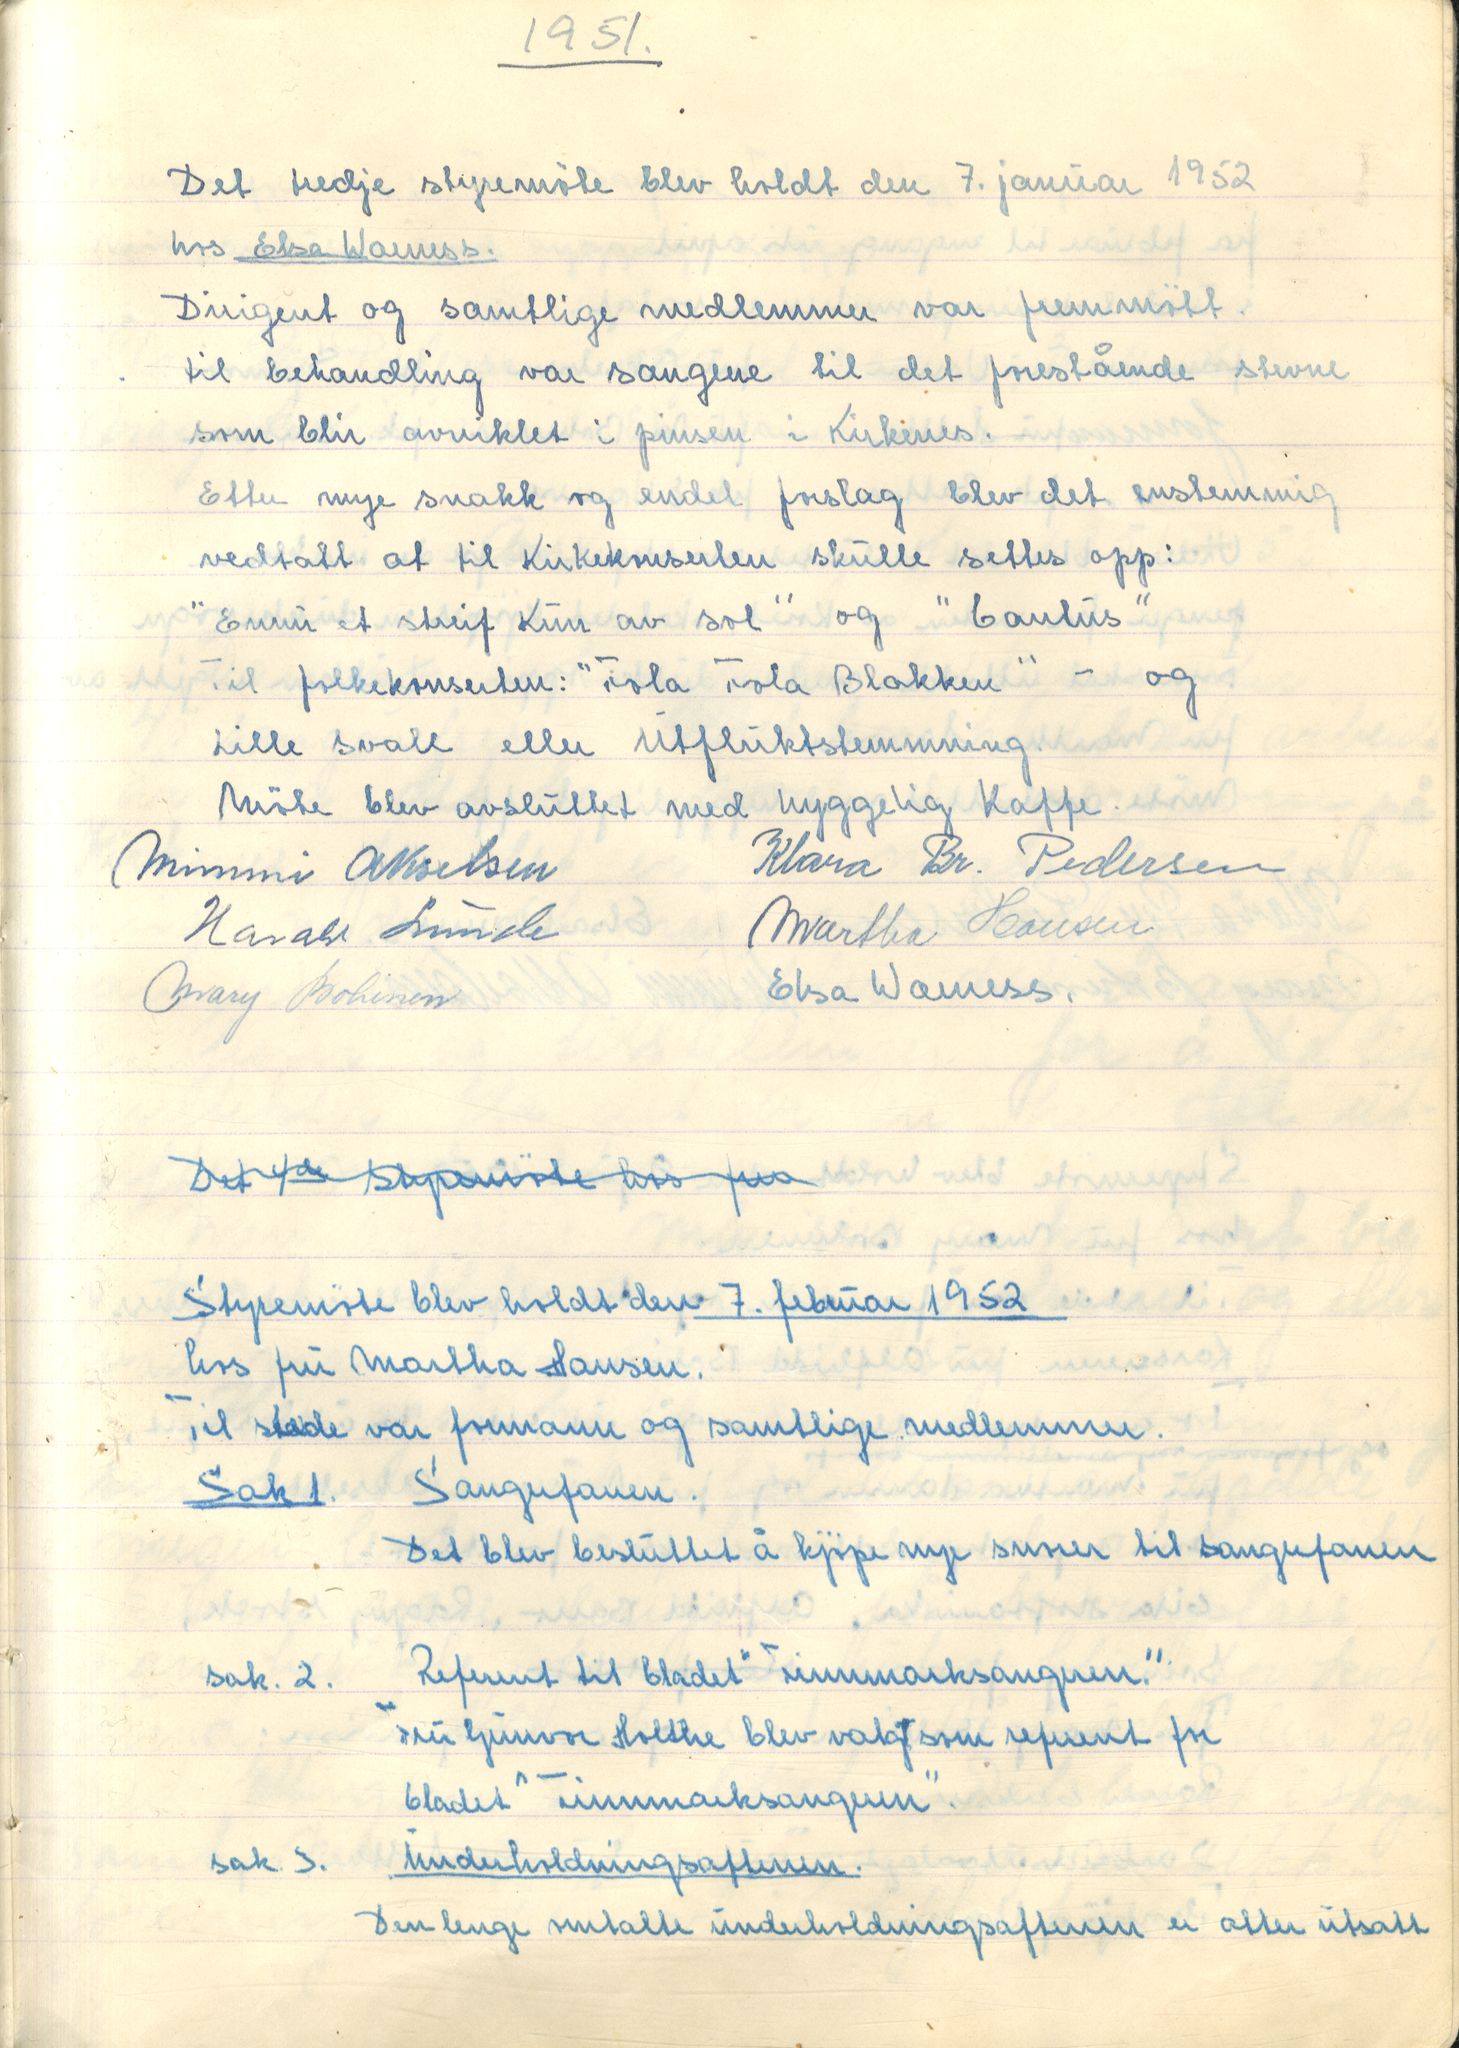 1951.
Det tredje styremöte blev holdt den 7. januar 1952
hos Elsa Warness.
Dirigent og samtlige medlemmer var fremmött.
til behandling var sangene til det forestående stevne
som blir avviklet i pinsen i Kirkenes.
Etter mye snakk og endel forslag blev det enstemmig
vedtatt at til Kirkekonserten skulle settes opp:
"Ennu et streif kun av sol" og "Cantus"
Til folkekonserten: "Fola Fola Blakken" - og
lille svale eller Utfluktstemmning.
Möte blev avsluttet med hyggelig Kaffe.
Mimmi Akselsen Klara Br. Pedersen
Harald Lunde Martha Hansen
Mary Elsa Warness.
Det 4de styremöte hos fru
Styremöte blev holdt den 7. februar 1952
hos fru Martha Hansen.
Til stede var formann og samtlige medlemmer.
Sak 1. Sangerfanen.
Det blev besluttet å kjöpe nye snorer til sangerfanen
sak. 2. Referent til bladet "Finnmarksangeren."
Fru Gunvor Holthe blev valgt som referent for
bladet "Finnmarksangeren".
sak 3. Underholdningsaftenen.
Den lenge omtalte underholdningsaftenen er atter utsatt